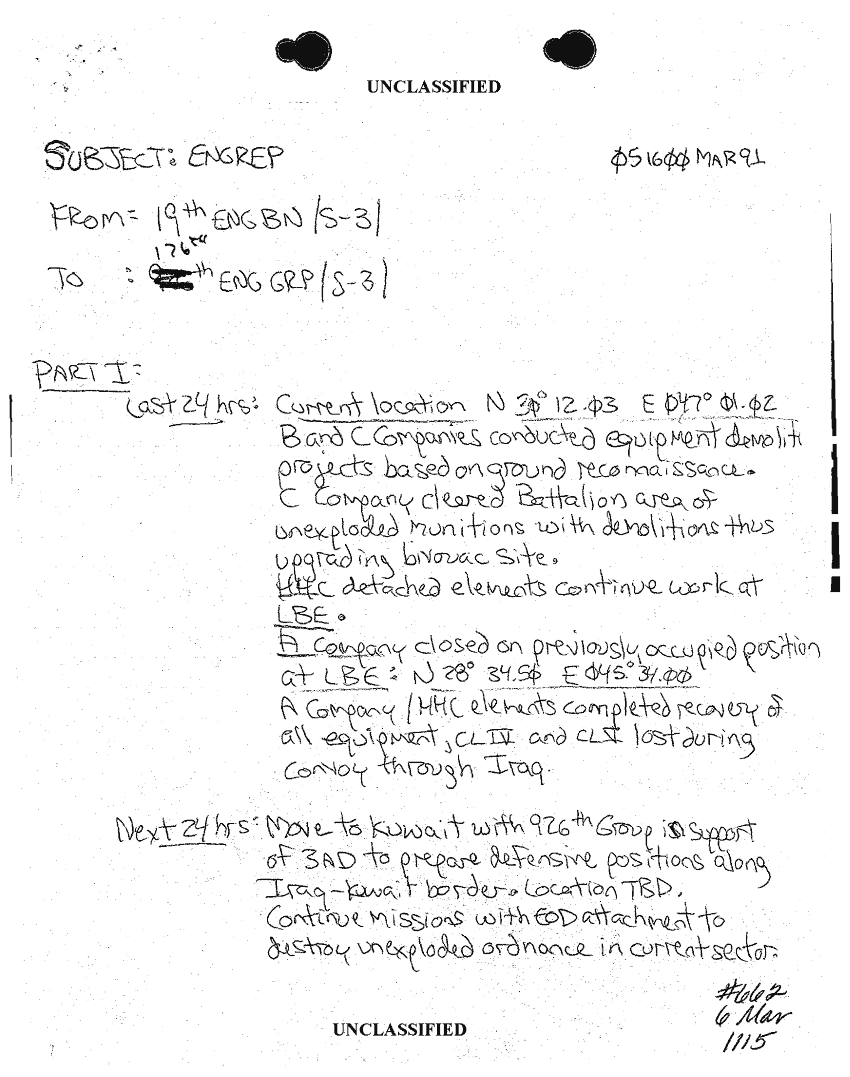 UNCLASSIFIED
SUBJECT: ENGREP 051600 MAR 91
FROM: 19th ENG BN/S-3/
176th
TO : th ENG GRP/S-3/
PART I:
Last 24 hrs: Current location N 30° 12.03 E 047° 01.02
B and C Companies conducted equipment demoliti
projects based on ground reconnaissance.
C Company cleared Battalion area of
unexploded munitions with demolitions thus
upgrading bivouac site.
HHC detached elements continue work at
LBE.
A Company closed on previously occupied position
at LBE: N 28° 34.50 E 045° 34.00
A Company/HHC elements completed recovery of
all equipment, CL IV and CL V lost during
convoy through Iraq.
Next 24 hrs: Move to Kuwait with 926th Group in support
of 3AD to prepare defensive positions along
Iraq-Kuwait border. Location TBD.
Continue missions with EOD attachment to
destroy unexploded ordnance in current sector.
#662
6 Mar
1115
UNCLASSIFIED